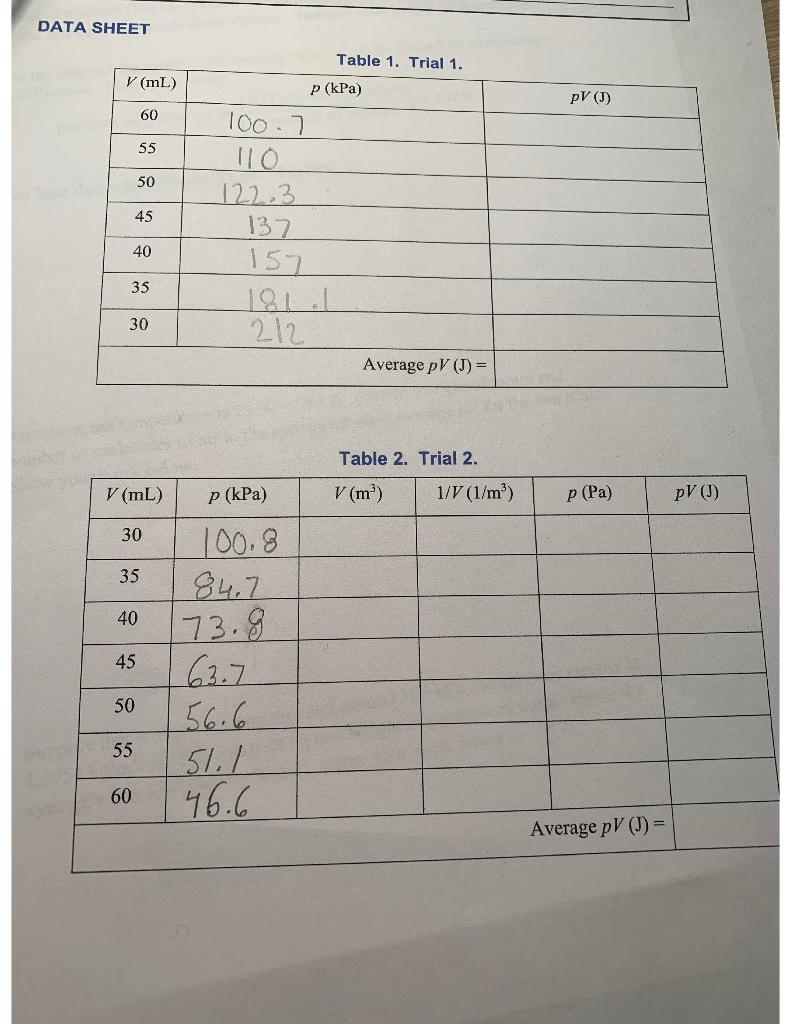 DATA SHEET
Table 1. Trial 1.
V (mL) p (kPa) pV (J)
60 100.7
55 110
50 122.3
45 137
40 157
35 181.1
30 212
Average pV (J) =
Table 2. Trial 2.
V (mL) p (kPa) V (m³) 1/V (1/m³) p (Pa) pV (J)
30 100.8
35 84.7
40 73.8
45 63.7
50 56.6
55 51.1
60 46.6
Average pV (J) =